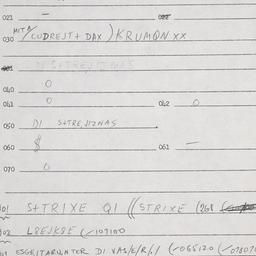 021 — 022
030 MITA/CUDREST + DAX) KRUMQNXX
040 0
041 0 042 0
050 DI S+TRE,JIZNAS
060 $ 061 —
070 0
101 S+TRIXE QI ((STRIXE (268
102 L8EJK8E (/107100
ESGEITARUATOR DI VAS/E/R/,/ (/085120 (/